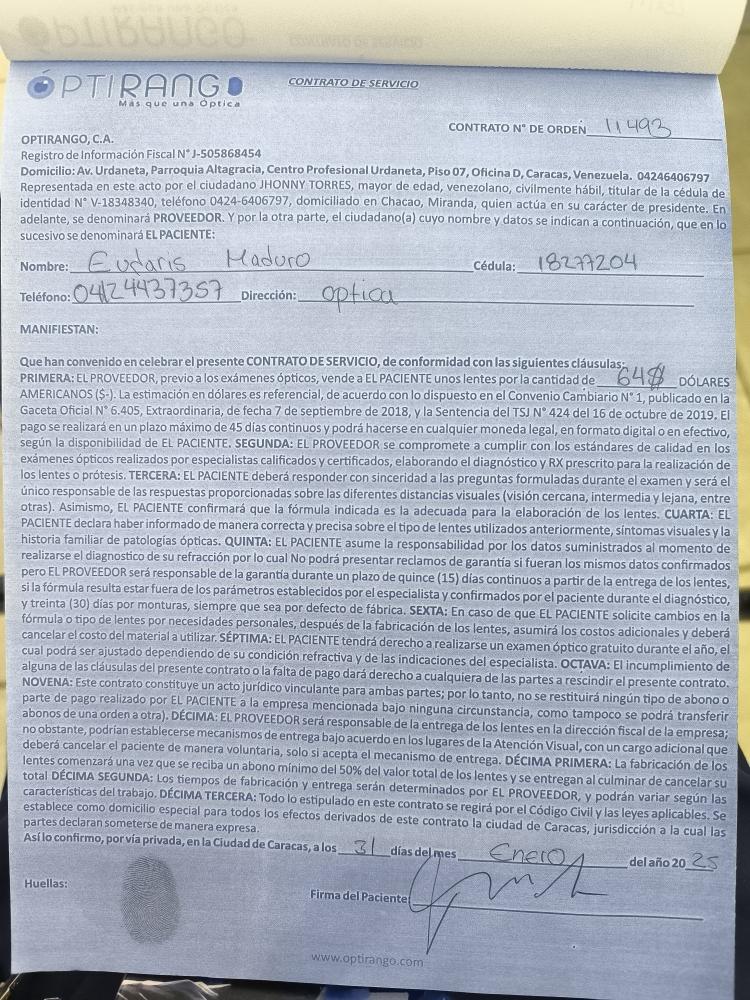 ÓPTIRANGO
Más que una Óptica
CONTRATO DE SERVICIO
CONTRATO N° DE ORDEN 11493
OPTIRANGO, C.A.
Registro de Información Fiscal N° J-505868454
Domicilio: Av. Urdaneta, Parroquia Altagracia, Centro Profesional Urdaneta, Piso 07, Oficina D, Caracas, Venezuela. 04246406797
Representada en este acto por el ciudadano JHONNY TORRES, mayor de edad, venezolano, civilmente hábil, titular de la cédula de
identidad N° V-18348340, teléfono 0424-6406797, domiciliado en Chacao, Miranda, quien actúa en su carácter de presidente. En
adelante, se denominará PROVEEDOR. Y por la otra parte, el ciudadano(a) cuyo nombre y datos se indican a continuación, que en lo
sucesivo se denominará EL PACIENTE:
Nombre: Eudaris Maduro Cédula: 18277204
Teléfono: 04124437357 Dirección: optica
MANIFIESTAN:
Que han convenido en celebrar el presente CONTRATO DE SERVICIO, de conformidad con las siguientes cláusulas:
PRIMERA: EL PROVEEDOR, previo a los exámenes ópticos, vende a EL PACIENTE unos lentes por la cantidad de 64$ DÓLARES
AMERICANOS ($-). La estimación en dólares es referencial, de acuerdo con lo dispuesto en el Convenio Cambiario N° 1, publicado en la
Gaceta Oficial N° 6.405, Extraordinaria, de fecha 7 de septiembre de 2018, y la Sentencia del TSJ N° 424 del 16 de octubre de 2019. El
pago se realizará en un plazo máximo de 45 días continuos y podrá hacerse en cualquier moneda legal, en formato digital o en efectivo,
según la disponibilidad de EL PACIENTE. SEGUNDA: EL PROVEEDOR se compromete a cumplir con los estándares de calidad en los
exámenes ópticos realizados por especialistas calificados y certificados, elaborando el diagnóstico y RX prescrito para la realización de
los lentes o prótesis. TERCERA: EL PACIENTE deberá responder con sinceridad a las preguntas formuladas durante el examen y será el
único responsable de las respuestas proporcionadas sobre las diferentes distancias visuales (visión cercana, intermedia y lejana, entre
otras). Asimismo, EL PACIENTE confirmará que la fórmula indicada es la adecuada para la elaboración de los lentes. CUARTA: EL
PACIENTE declara haber informado de manera correcta y precisa sobre el tipo de lentes utilizados anteriormente, síntomas visuales y la
historia familiar de patologías ópticas. QUINTA: EL PACIENTE asume la responsabilidad por los datos suministrados al momento de
realizarse el diagnostico de su refracción por lo cual No podrá presentar reclamos de garantía si fueran los mismos datos confirmados
pero EL PROVEEDOR será responsable de la garantía durante un plazo de quince (15) días continuos a partir de la entrega de los lentes,
si la fórmula resulta estar fuera de los parámetros establecidos por el especialista y confirmados por el paciente durante el diagnóstico,
y treinta (30) días por monturas, siempre que sea por defecto de fábrica. SEXTA: En caso de que EL PACIENTE solicite cambios en la
fórmula o tipo de lentes por necesidades personales, después de la fabricación de los lentes, asumirá los costos adicionales y deberá
cancelar el costo del material a utilizar. SÉPTIMA: EL PACIENTE tendrá derecho a realizarse un examen óptico gratuito durante el año, el
cual podrá ser ajustado dependiendo de su condición refractiva y de las indicaciones del especialista. OCTAVA: El incumplimiento de
alguna de las cláusulas del presente contrato o la falta de pago dará derecho a cualquiera de las partes a rescindir el presente contrato.
NOVENA: Este contrato constituye un acto jurídico vinculante para ambas partes; por lo tanto, no se restituirá ningún tipo de abono o
parte de pago realizado por EL PACIENTE a la empresa mencionada bajo ninguna circunstancia, como tampoco se podrá transferir
abonos de una orden a otra). DÉCIMA: EL PROVEEDOR será responsable de la entrega de los lentes en la dirección fiscal de la empresa;
no obstante, podrían establecerse mecanismos de entrega bajo acuerdo en los lugares de la Atención Visual, con un cargo adicional que
deberá cancelar el paciente de manera voluntaria, solo si acepta el mecanismo de entrega. DÉCIMA PRIMERA: La fabricación de los
lentes comenzará una vez que se reciba un abono mínimo del 50% del valor total de los lentes y se entregan al culminar de cancelar su
total DÉCIMA SEGUNDA: Los tiempos de fabricación y entrega serán determinados por EL PROVEEDOR, y podrán variar según las
características del trabajo. DÉCIMA TERCERA: Todo lo estipulado en este contrato se regirá por el Código Civil y las leyes aplicables. Se
establece como domicilio especial para todos los efectos derivados de este contrato la ciudad de Caracas, jurisdicción a la cual las
partes declaran someterse de manera expresa.
Así lo confirmo, por vía privada, en la Ciudad de Caracas, a los 31 días del mes Enero del año 2025
Huellas:
Firma del Paciente
www.optirango.com